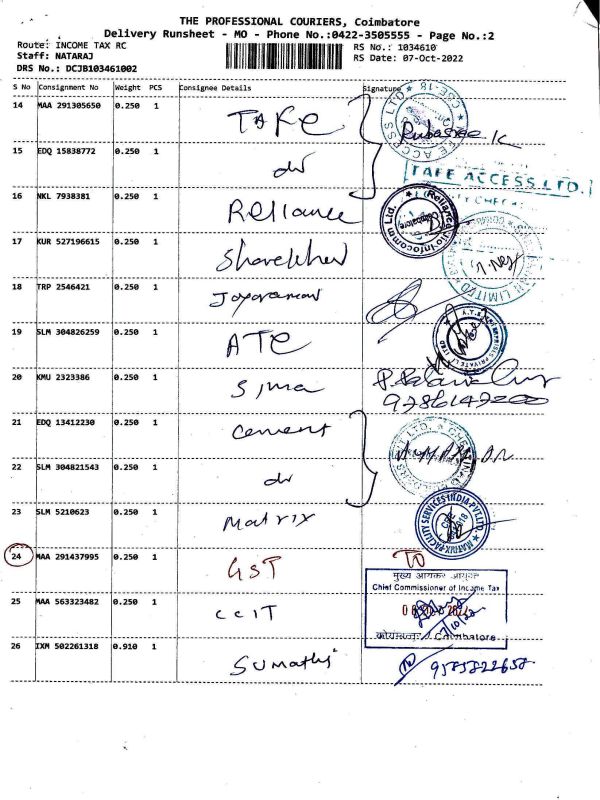 THE PROFESSIONAL COURIERS, Coimbatore
Delivery Runsheet - MO - Phone No.:0422-3505555 - Page No.:2
Route: INCOME TAX RC
RS No.: 1034610
Staff: NATARAJ
RS Date: 07-Oct-2022
DRS No.: DCJB103461002
S No Consignment No Weight PCS Consignee Details Signature
14 MAA 291305650 0.250 1 TAFE Rubasree K
15 EDQ 15838772 0.250 1 do
TAFE ACCESS LTD.
16 NKL 7938381 0.250 1 Reliance
17 KUR 527196615 0.250 1 Sharekhan
18 TRP 2546421 0.250 1 Jayaraman
19 SLM 304826259 0.250 1 ATE
20 KMU 2323386 0.250 1 Sima
9786147200
21 EDQ 13412230 0.250 1 cement
22 SLM 304821543 0.250 1 do
23 SLM 5210623 0.250 1 Matrix
MATRIX FACILITY SERVICES INDIA PVT LTD
24 MAA 291437995 0.250 1 GST TO
मुख्य आयकर आयुक्त
Chief Commissioner of Income Tax
25 MAA 563323482 0.250 1 CCIT
7/10/22
Coimbatore
26 IXM 502261318 0.910 1 Sumathi 9585822652